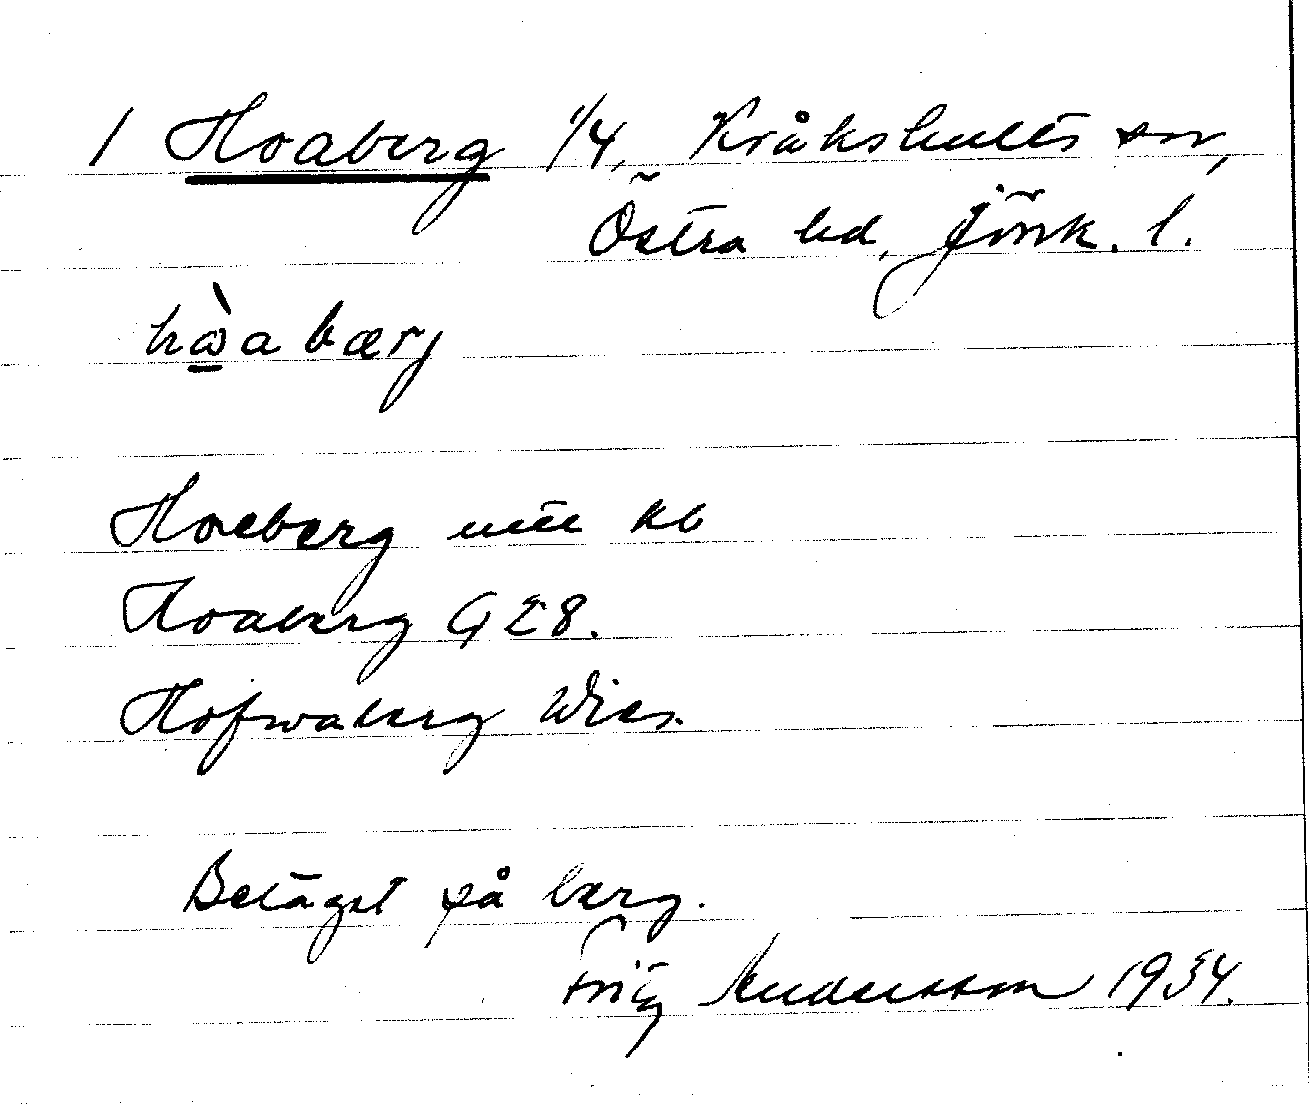 1 Hoaberg 1/4, Kråkshults sn,
Östra hd, Jönk. l.
hὼa bærj
Hoeberg utt kb
Hoaberg GEB.
Hofwaberg Wies.
Beläget på berg.
Fritz Andersson 1934.